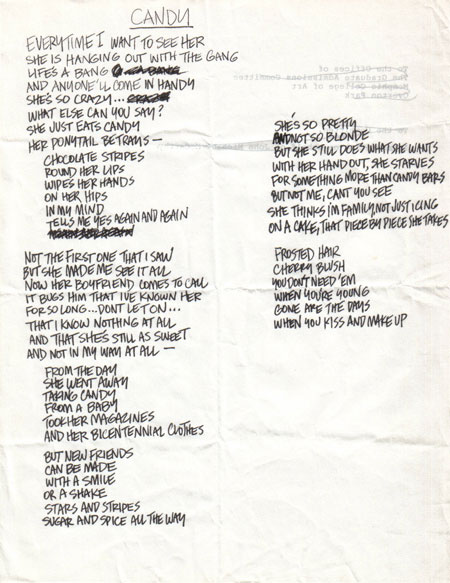 CANDY
EVERYTIME I WANT TO SEE HER
SHE IS HANGING OUT WITH THE GANG
LIFE'S A BANG
AND ANYONE'LL COME IN HANDY
SHE'S SO CRAZY...
WHAT ELSE CAN YOU SAY?
SHE JUST EATS CANDY
HER PONYTAIL BETRAYS —
CHOCOLATE STRIPES
ROUND HER LIPS
WIPES HER HANDS
ON HER HIPS
IN MY MIND
TELLS ME YES AGAIN AND AGAIN
NOT THE FIRST ONE THAT I SAW
BUT SHE MADE ME SEE IT ALL
NOW HER BOYFRIEND COMES TO CALL
IT BUGS HIM THAT I'VE KNOWN HER
FOR SO LONG... DON'T LET ON...
THAT I KNOW NOTHING AT ALL
AND THAT SHE'S STILL AS SWEET
AND NOT IN MY WAY AT ALL —
FROM THE DAY
SHE WENT AWAY
TAKING CANDY
FROM A BABY
TOOK HER MAGAZINES
AND HER BICENTENNIAL CLOTHES
BUT NEW FRIENDS
CAN BE MADE
WITH A SMILE
OR A SHAKE
STARS AND STRIPES
SUGAR AND SPICE ALL THE WAY
SHE'S SO PRETTY
AND NOT SO BLONDE
BUT SHE STILL DOES WHAT SHE WANTS
WITH HER HAND OUT, SHE STARVES
FOR SOMETHING MORE THAN CANDY BARS
BUT NOT ME, CAN'T YOU SEE
SHE THINKS I'M FAMILY, NOT JUST ICING
ON A CAKE, THAT PIECE BY PIECE SHE TAKES
FROSTED HAIR
CHERRY BLUSH
YOU DON'T NEED 'EM
WHEN YOU'RE YOUNG
GONE ARE THE DAYS
WHEN YOU KISS AND MAKE UP
To the Offices of
The Graduate Admissions Committee
Memphis College of Art
Overton Park